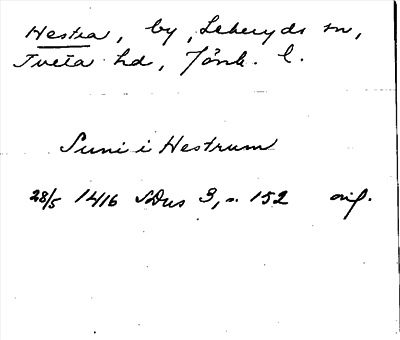 Hestra, by, Lekeryds sn,
Tveta hd, Jönk. l.
Suni i Hestrum
28/5 1416 SDns 3, s. 152 orig.